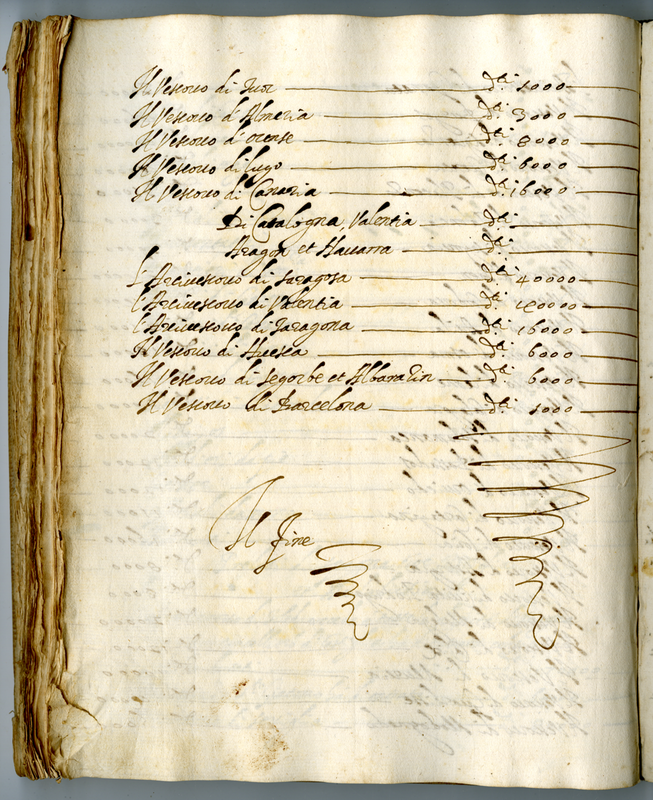 Il Vescovo di Tuor — d.ti 5000
Il Vescovo d'Almeria — d.ti 3000
Il Vescovo d'orense — d.ti 8000
Il Vescovo di lugo — d.ti 6000
Il Vescovo di Canaria — d.ti 16000
Di Catalogna, Valentia — d.ti
Aragon et Navarra — d.ti
L'Arcivescovo di saragosa — d.ti 40000
l'Arcivescovo di Valentia — d.ti
l'Arcivescovo di Taragona — d.ti 16000
Il Vescovo di Huesca — d.ti 6000
Il Vescovo di segorbe et Albarazin — d.ti 6000
Il Vescovo di Barcelona — d.ti 5000
Il fine